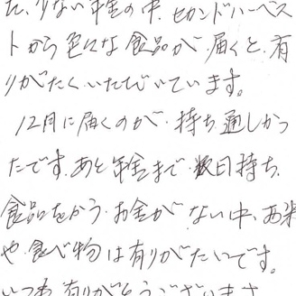 た、少ない年金の中、セカンドハーベス
トから色々な食品が、届くと、有
りがたくいただいています。
12月に届くのが、持ち通しかっ
たです。あと年金まで、数日持ち、
食品をかう、お金が ない中、お米
や、食べ物は有りがたいです。
いつも 有りがとうございます